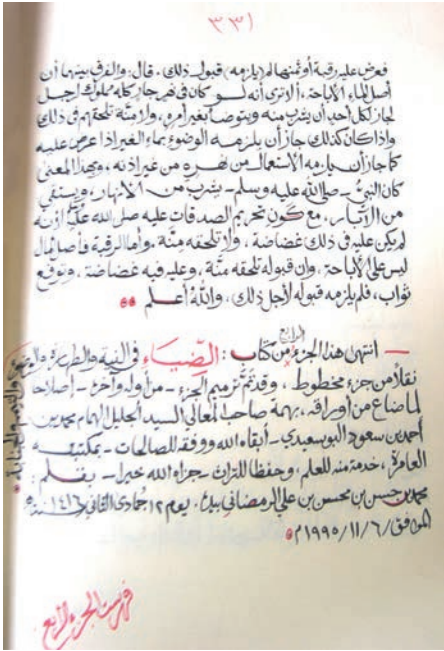 ٣٣١
فعرض عليه رقبة أو ثمنها لم (يلزمه) قبول ذلك. قال: والفرق بينهما أن
أصل الماء الإباحة، ألا ترى أنه لو كان في نهر جار كله مملوك لرجل
لجاز لكل أحد أن يشرب منه ويتوضأ بغير أمره، ولا منّة تلحقهم في ذلك
وإذا كان كذلك جاز أن يلزمه الوضوء بماء الغير إذا عرض عليه
كما جاز أن يلزمه الاستعمال من نهره من غير إذنه، وبهذا المعنى
كان النبي - صلى الله عليه وسلم - يشرب من الأنهار، ويستقي
من الآبار، مع كون تحريم الصدقات عليه صلى الله عليه وسلم لأنه
لم يكن عليه في ذلك غضاضة، ولا تلحقه منّة، وأما الرقبة فأصل المال
ليس على الإباحة، وإن قبوله تلحقه منّة، وعليه فيه غضاضة، وتوقع
ثواب، فلم يلزمه قبوله لأجل ذلك، والله أعلم
— انتهى هذا الجزء الرابع من كتاب: الضياء في النية والطهارة والوضوء والتيمم والجنابة
نقلاً من جزء مخطوط، وقد تم ترميم الجزء - من أوله وآخره - إصلاحا
لما ضاع من أوراقه، بهمة صاحب المعالي السيد الجليل الهمام محمد بن
أحمد بن سعود البوسعيدي - أبقاه الله ووفقه للصالحات - بمكتبته
العامرة، خدمة منه للعلم، وحفظا للتراث - جزاه الله خيرا - بقلم:
محمد بن حسن بن محسن بن علي الرمضاني بيده. يوم ١٢ جمادى الثاني ١٤١٦ سنة
الموافق ٦/ ١١/ ١٩٩٥م
فهرست الجزء الرابع